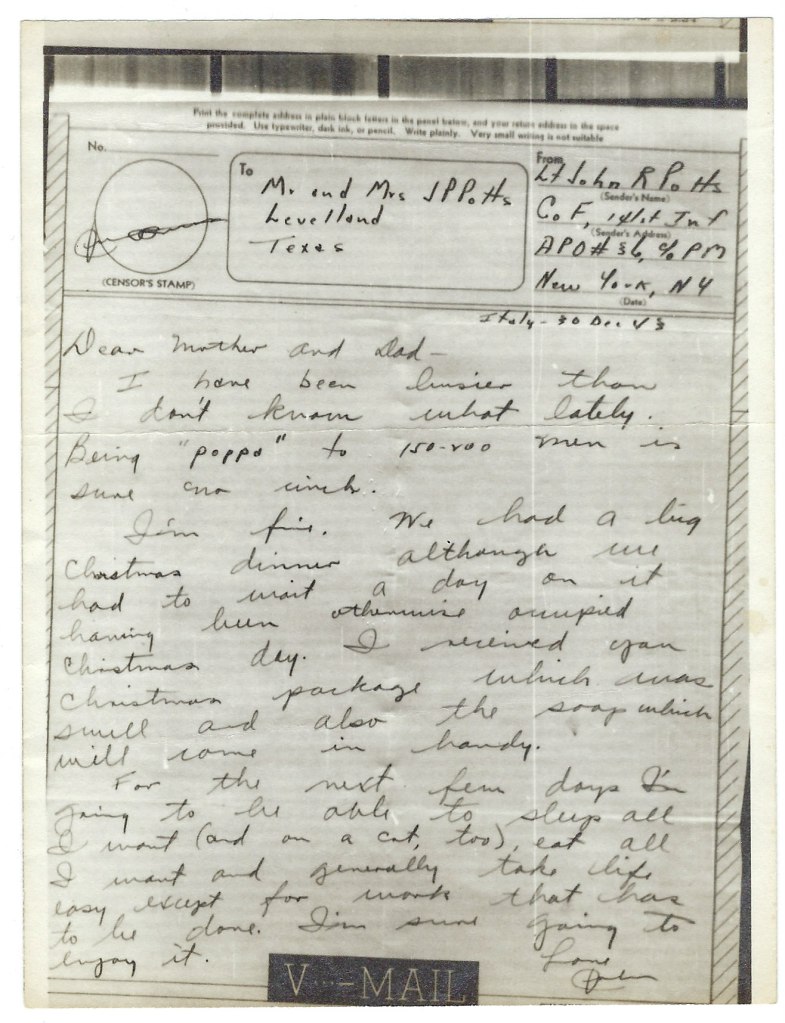 Print the complete address in plain block letters in the panel below, and your return address in the space
provided. Use typewriter, dark ink, or pencil. Write plainly. Very small writing is not suitable
No.
(CENSOR'S STAMP)
To
Mr and Mrs J P Potts
Levelland
Texas
From
Lt John R Potts
(Sender's Name)
Co F, 141st Inf
(Sender's Address)
APO # 36, c/o PM
New York, NY
(Date)
Italy - 30 Dec 43
Dear Mother and Dad -
I have been busier than
I don't know what lately.
Being "poppa" to 150-200 men is
sure no cinch.
I'm fine. We had a big
Christmas dinner although we
had to wait a day on it
having been otherwise occupied
Christmas day. I received your
Christmas package which was
swell and also the soap which
will come in handy.
For the next few days I'm
going to be able to sleep all
I want (and on a cot, too), eat all
I want and generally take life
easy except for work that has
to be done. I'm sure going to
enjoy it.
Love
John
V---MAIL